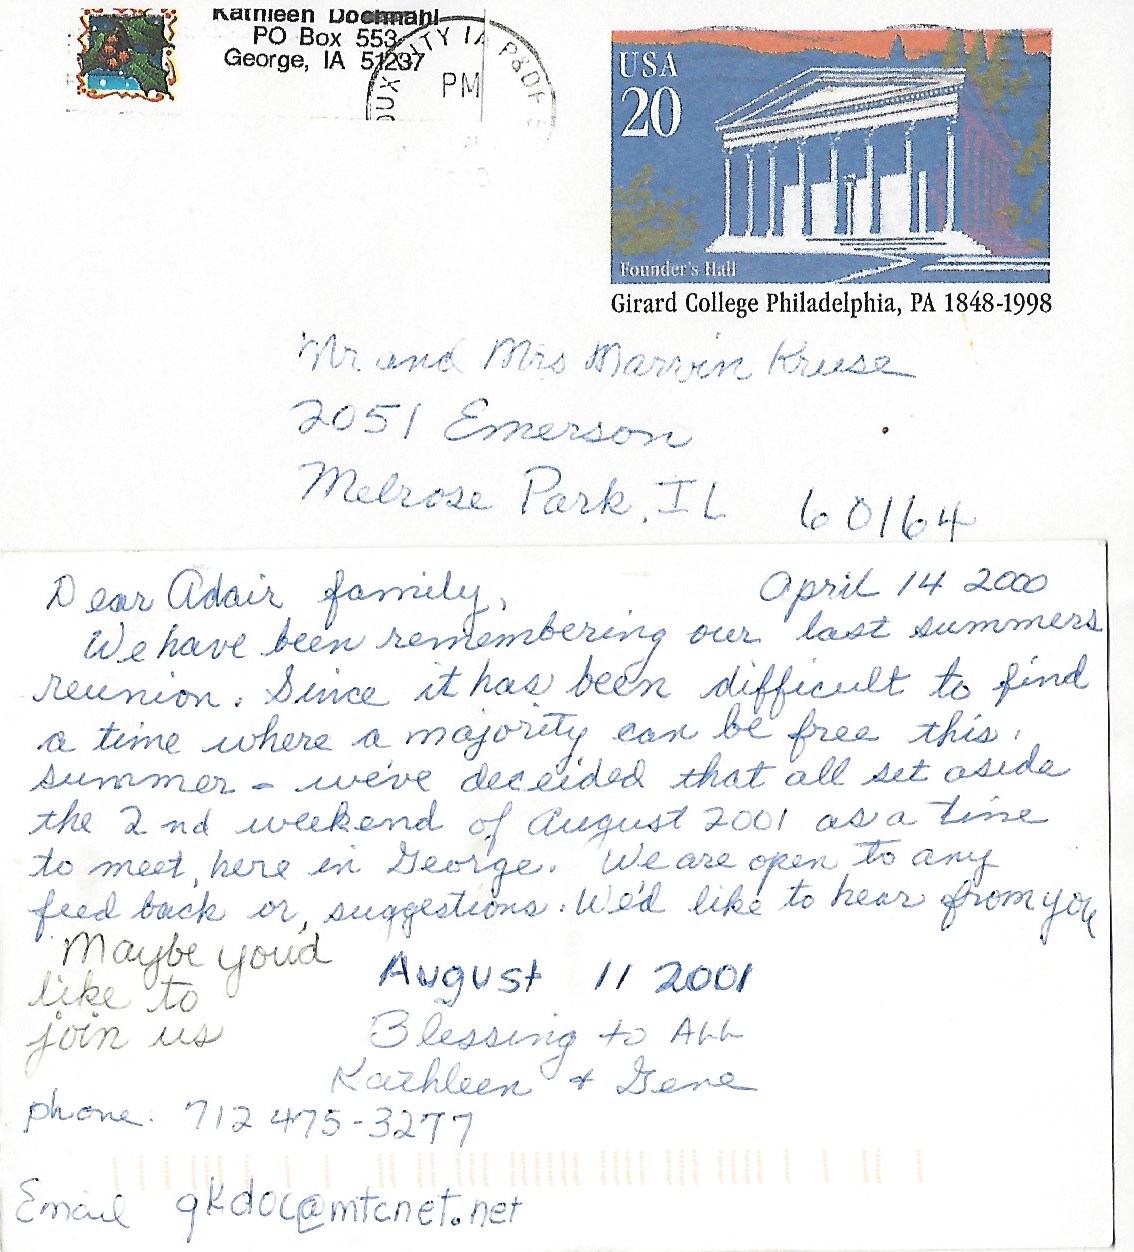 Kathleen Dochmahl
PO Box 553
George, IA 51237
UX CITY IA P&DF
PM
USA
20
Founder's Hall
Girard College Philadelphia, PA 1848-1998
Mr. and Mrs Marvin Kruse
2051 Emerson
Melrose Park, IL 60164
Dear Adair family, April 14 2000
We have been remembering our last summers
reunion. Since it has been difficult to find
a time where a majority can be free this
summer - we've deceided that all set aside
the 2nd weekend of August 2001 as a time
to meet, here in George. We are open to any
feed back or suggestions. We'd like to hear from you
Maybe you'd
like to
join us
August 11 2001
Blessing to ALL
Kathleen + Gene
phone: 712 475-3277
Email gkdoc@mtcnet.net